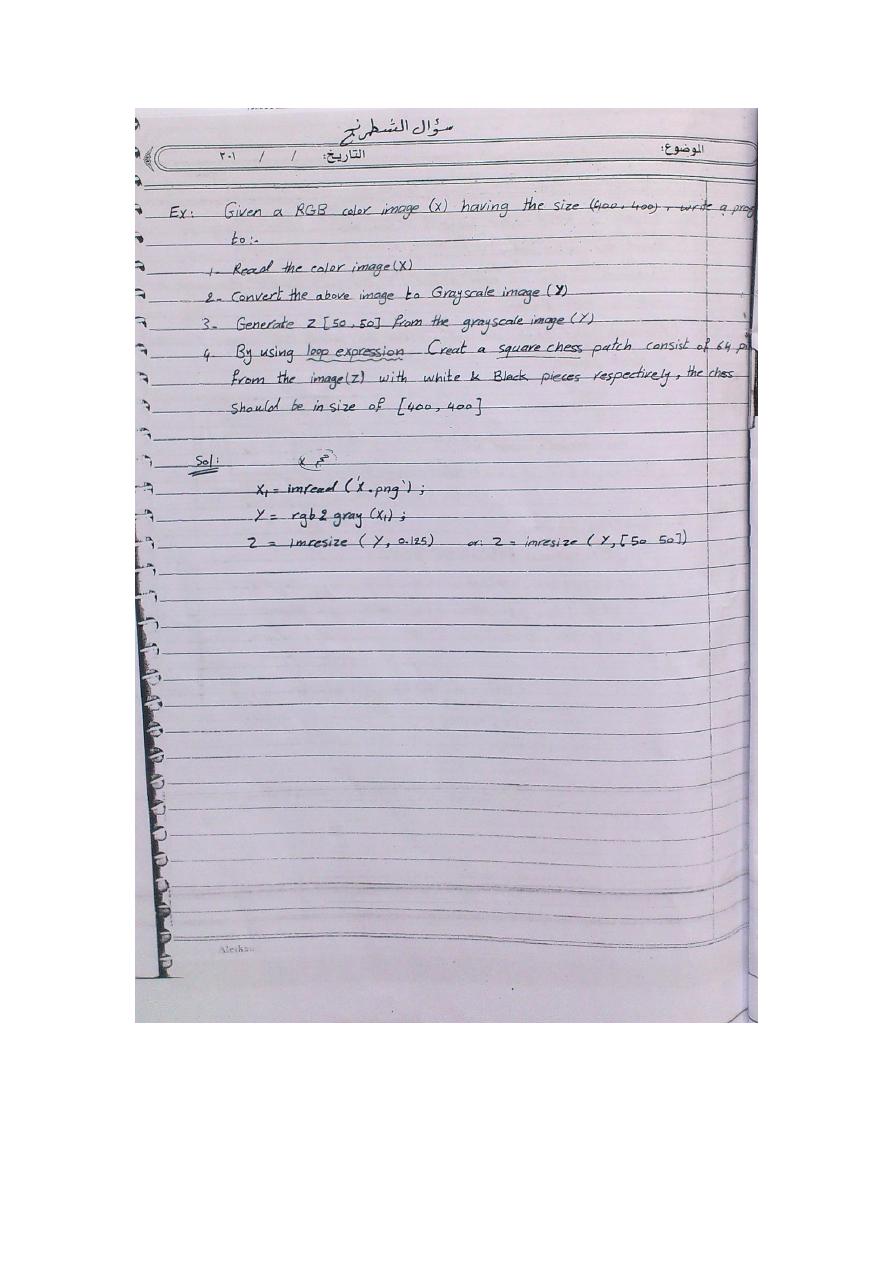 سؤال الشطرنج
الموضوع: التاريخ: / / ٢٠١
Ex: Given a RGB color image (x) having the size (400, 400), write a prog
to:-
1- Read the color image (X)
2- Convert the above image to Grayscale image (Y)
3- Generate Z [50, 50] from the grayscale image (Y)
4. By using loop expression Creat a square chess patch consist of 64 pi
from the image(Z) with white & Black pieces respectively, the chess
should be in size of [400, 400]
Sol:
X1 = imread ('x.png');
Y = rgb2gray (X1);
Z = imresize (Y, 0.125) or: Z = imresize (Y, [50 50])